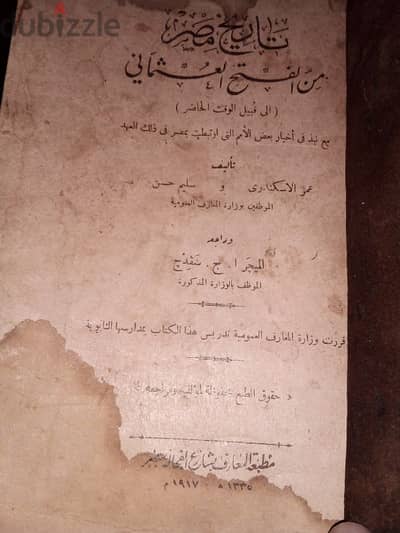 dubizzle
تاريخ مصر
من الفتح العثماني
( الى قبيل الوقت الحاضر )
مع نبذ فى أخبار بعض الأمم التى ارتبطت بمصر فى ذلك العهد
تأليف
عمر الاسكندرى و سليم حسن
الموظفين بوزارة المعارف العمومية
وراجعه
الميجر ا . ج . سفدج
الموظف بالوزارة المذكورة
قررت وزارة المعارف العمومية تدريس هذا الكتاب بمدارسها الثانوية
« حقوق الطبع محفوظة
مطبعة المعارف بشارع الفجالة بمصر
١٣٣٥ ه - ١٩١٧ م